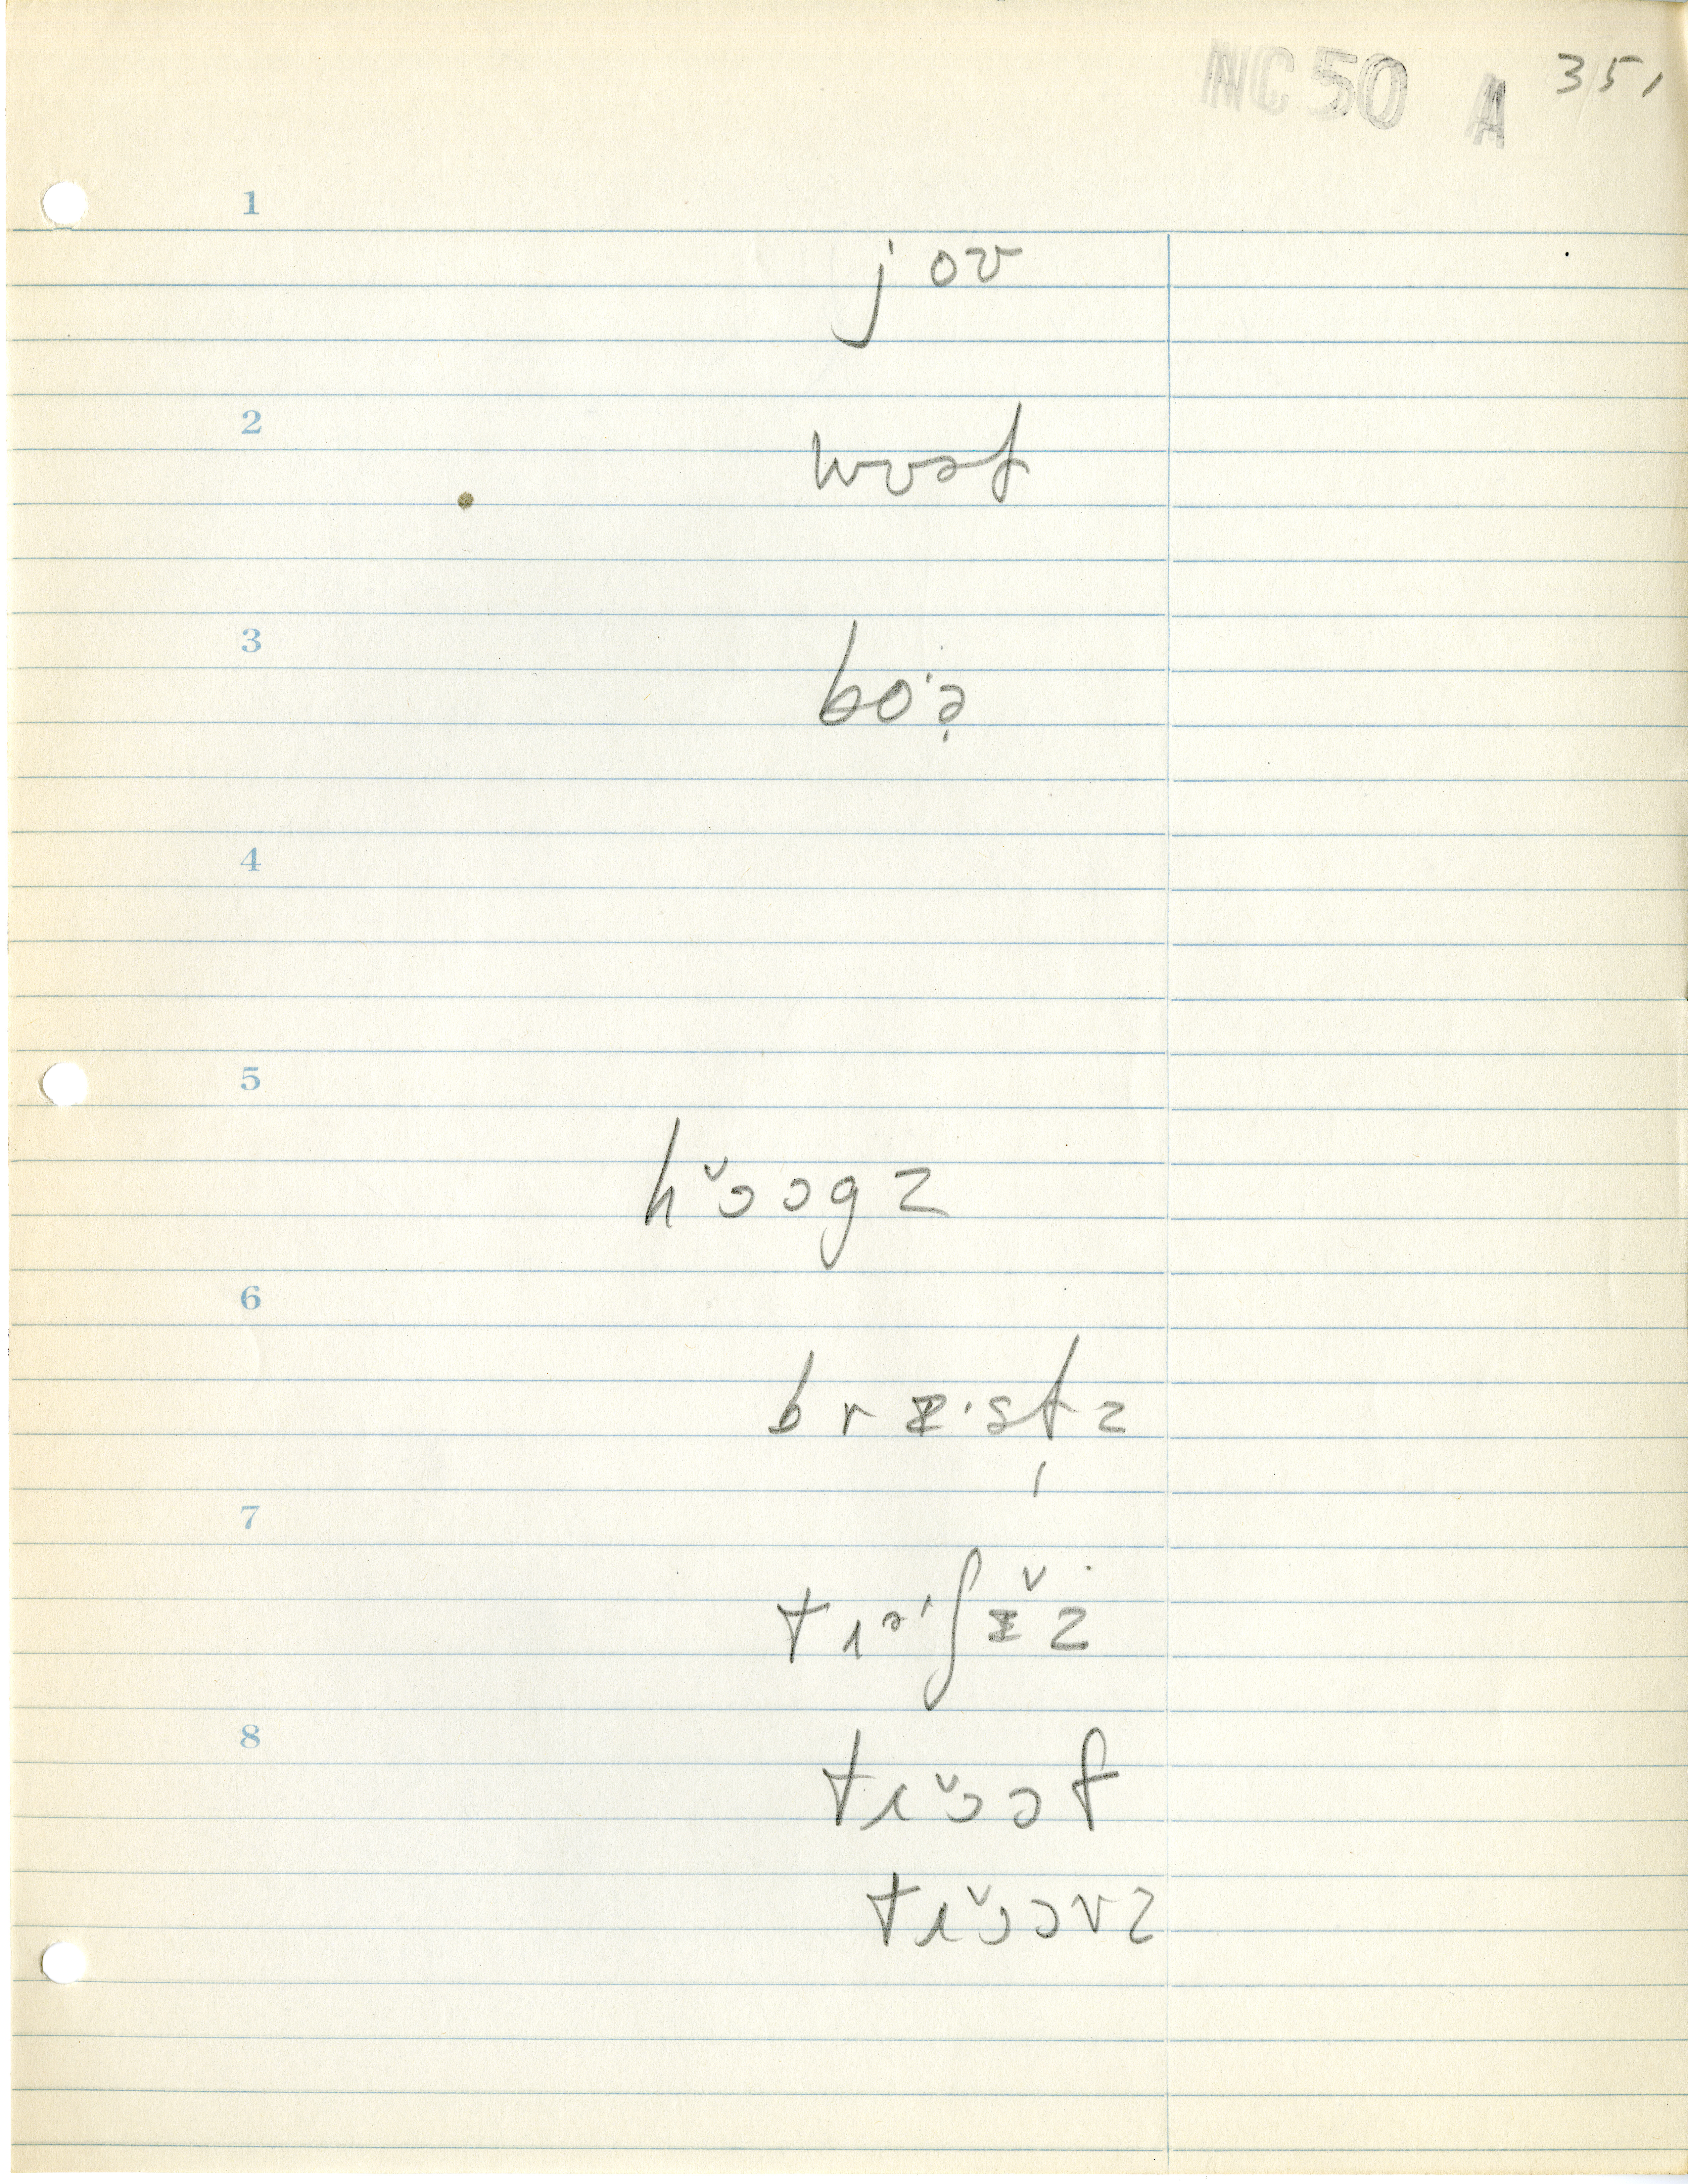 NC 50 A 351
1
jov
2
wɒst
3
bo·ə̣
4
5
hɔ̌ɔgz
6
brɪ·stz
7
trə·ʃɪ̌z
8
trɔ̌ɔf
trɔ̌ɔvz